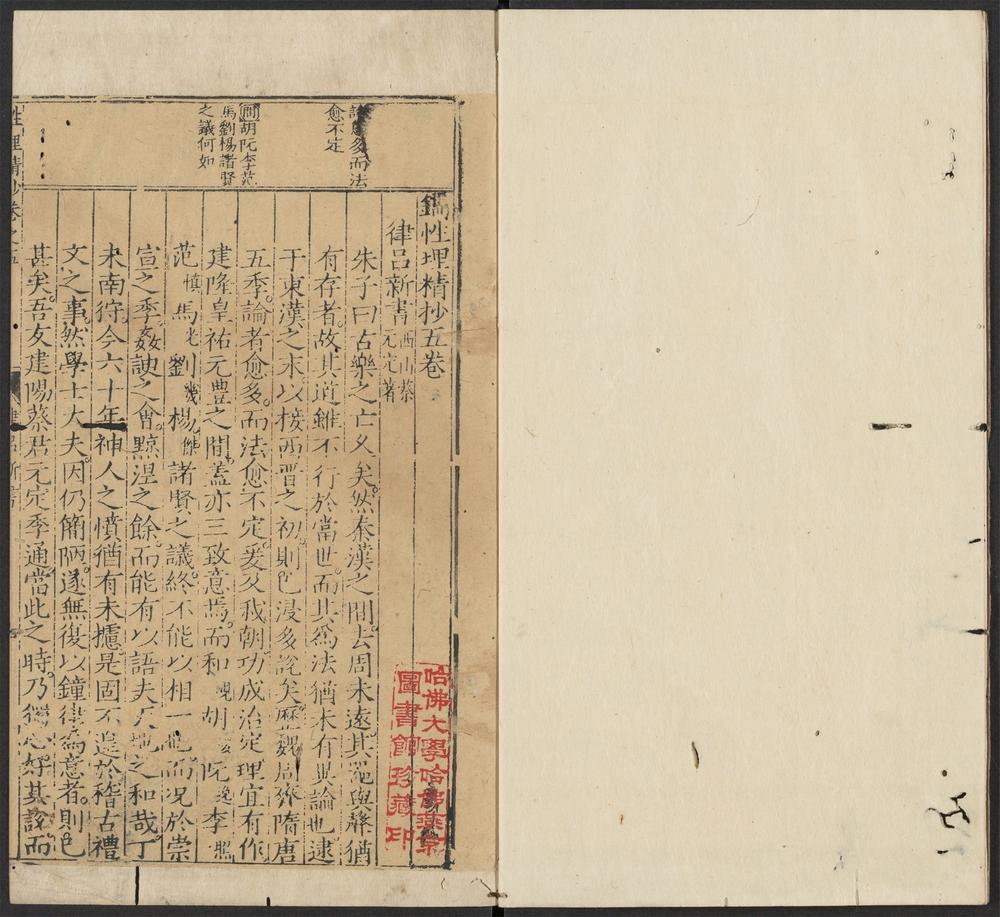 諸愈多而法
愈不定
問胡阮李范
馬劉楊諸賢
之議何如
鐫性理精抄五卷
律呂新書西山蔡元定著
朱子曰古樂之亡久矣然秦漢之間去周未遠其器與聲猶
有存者故其道雖不行於當世而其爲法猶未有異論也逮
于東漢之末以接西晉之初則已浸多說矣歷魏周齊隋唐
五季論者愈多而法愈不定爰及我朝功成治定理宜有作
建隆皇祐元豐之間蓋亦三致意焉而和峴胡瑗阮逸李照
范慎馬光劉幾楊傑諸賢之議終不能以相一也而況於崇
宣之季姦諛之會黥涅之餘而能有以語夫天地之和哉丁
未南狩今六十年神人之憤猶有未攄是固不遑於稽古禮
文之事然學士大夫因仍簡陋遂無復以鐘律爲意者則已
甚矣吾友建陽蔡君元定季通當此之時乃獨心好其說而
性理精抄卷之五
律呂新書
哈佛大學哈佛燕京
圖書館珍藏印